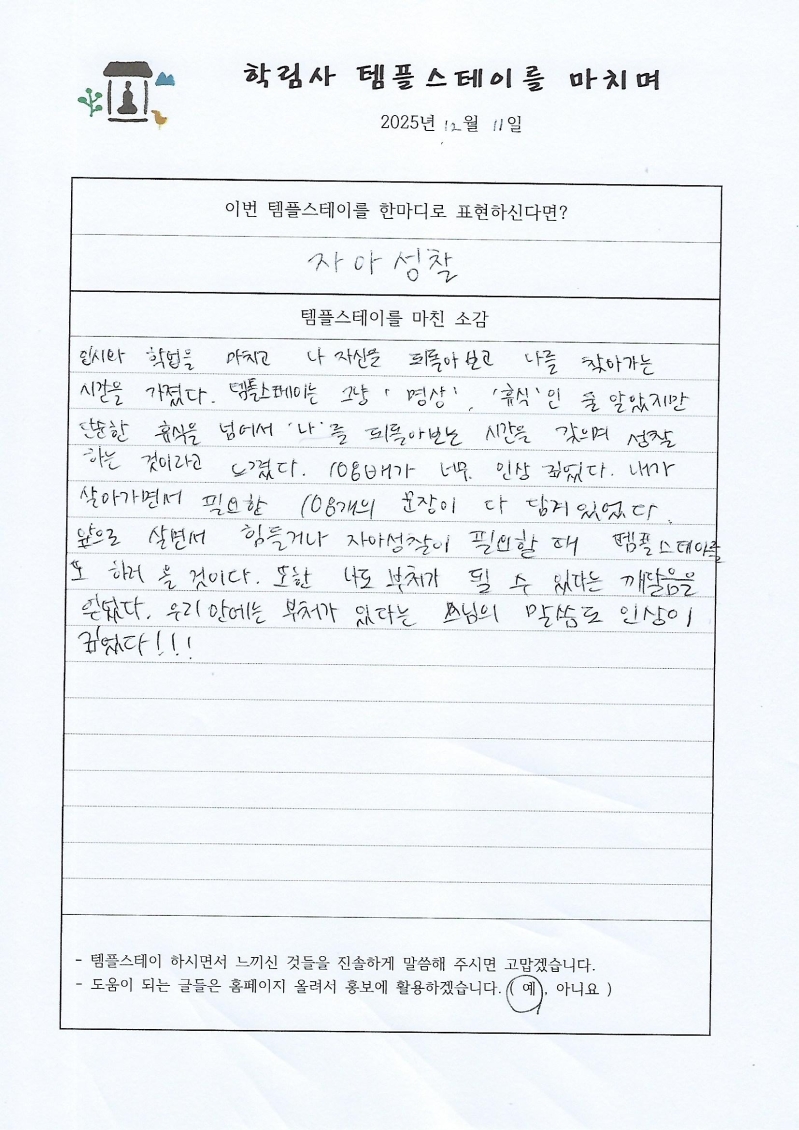 학림사 템플스테이를 마치며
2025년 12월 11일
이번 템플스테이를 한마디로 표현하신다면?
자아성찰
템플스테이를 마친 소감
입시와 학업을 마치고 나 자신을 되돌아보고 나를 찾아가는
시간을 가졌다. 템플스테이는 그냥 '명상', '휴식'인 줄 알았지만
단순한 휴식을 넘어서 '나'를 되돌아보는 시간을 갖으며 성찰
하는 것이라고 느꼈다. 108배가 너무 인상 깊었다. 내가
살아가면서 필요한 108개의 문장이 다 담겨있었다.
앞으로 살면서 힘들거나 자아성찰이 필요할 때 템플스테이를
또 하러 올 것이다. 또한 나도 부처가 될 수 있다는 깨달음을
얻었다. 우리 안에는 부처가 있다는 스님의 말씀도 인상이
깊었다!!!
- 템플스테이 하시면서 느끼신 것들을 진솔하게 말씀해 주시면 고맙겠습니다.
- 도움이 되는 글들은 홈페이지 올려서 홍보에 활용하겠습니다. ( 예 , 아니요 )